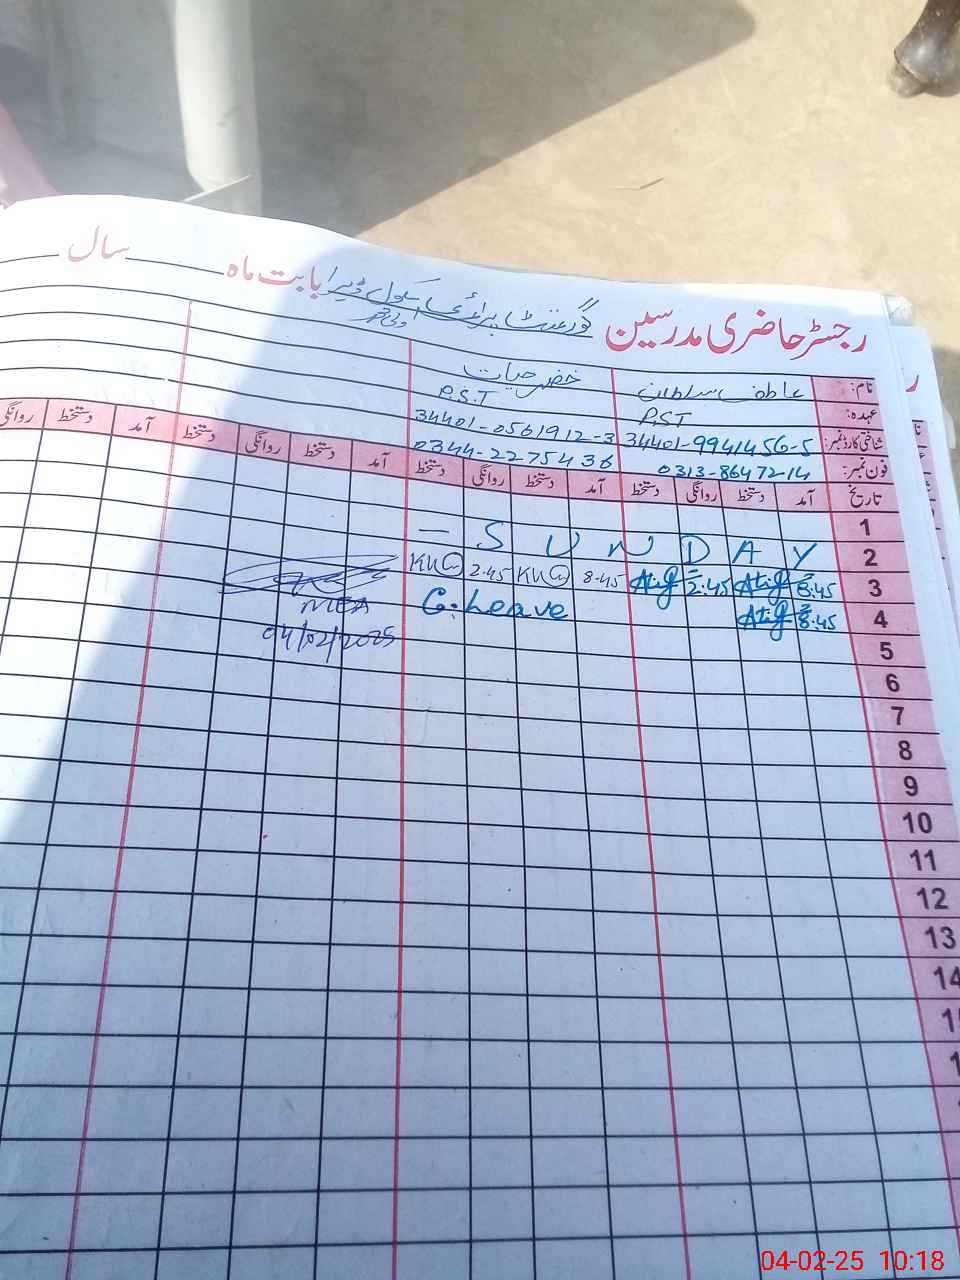 رجسٹر حاضری مدرسین گورنمنٹ پرائمری سکول ڈیرا بابت ماہ سال
نام: عاطف سلطان خضر حیات
عہدہ: P.ST P.S.T
شناختی کارڈ نمبر: 34401-9941456-5 34401-0561912-3
فون نمبر: 0313-8647214 0344-2275436
تاریخ آمد دستخط روانگی دستخط آمد دستخط روانگی دستخط آمد دستخط روانگی دستخط آمد دستخط روانگی
1
= S U N D A Y 2
2.45 8.45 Atif 2.45 Atif 8.45 3
C. Leave Atif 8.45 4
MEA
04/02/2025
5
6
7
8
9
10
11
12
13
14
04-02-25 10:18